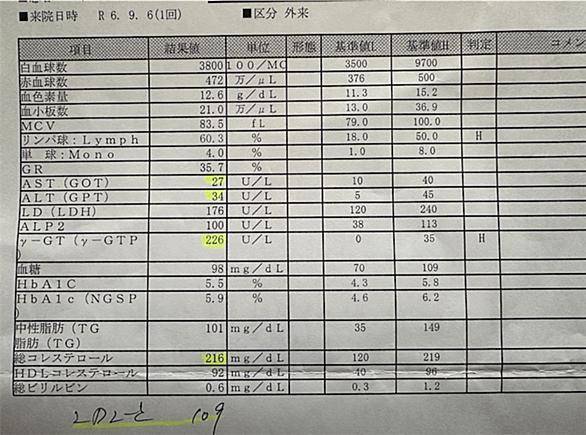 ■来院日時 R 6. 9. 6(1回) ■区分 外来
項目 結果値 単位 形態 基準値L 基準値H 判定 コメン
白血球数 3800 100/MC 3500 9700
赤血球数 472 万/μL 376 500
血色素量 12.6 g/dL 11.3 15.2
血小板数 21.0 万/μL 13.0 36.9
MCV 83.5 fL 79.0 100.0
リンパ球:Lymph 60.3 % 18.0 50.0 H
単 球:Mono 4.0 % 1.0 8.0
GR 35.7 %
AST(GOT) 27 U/L 10 40
ALT(GPT) 34 U/L 5 45
LD(LDH) 176 U/L 120 240
ALP2 100 U/L 38 113
γ-GT(γ-GTP 226 U/L 0 35 H
)
血糖 98 mg/dL 70 109
HbA1C 5.5 % 4.3 5.8
HbA1c(NGSP 5.9 % 4.6 6.2
)
中性脂肪(TG 101 mg/dL 35 149
脂肪(TG)
総コレステロール 216 mg/dL 120 219
HDLコレステロール 92 mg/dL 40 96
総ビリルビン 0.6 mg/dL 0.3 1.2
109